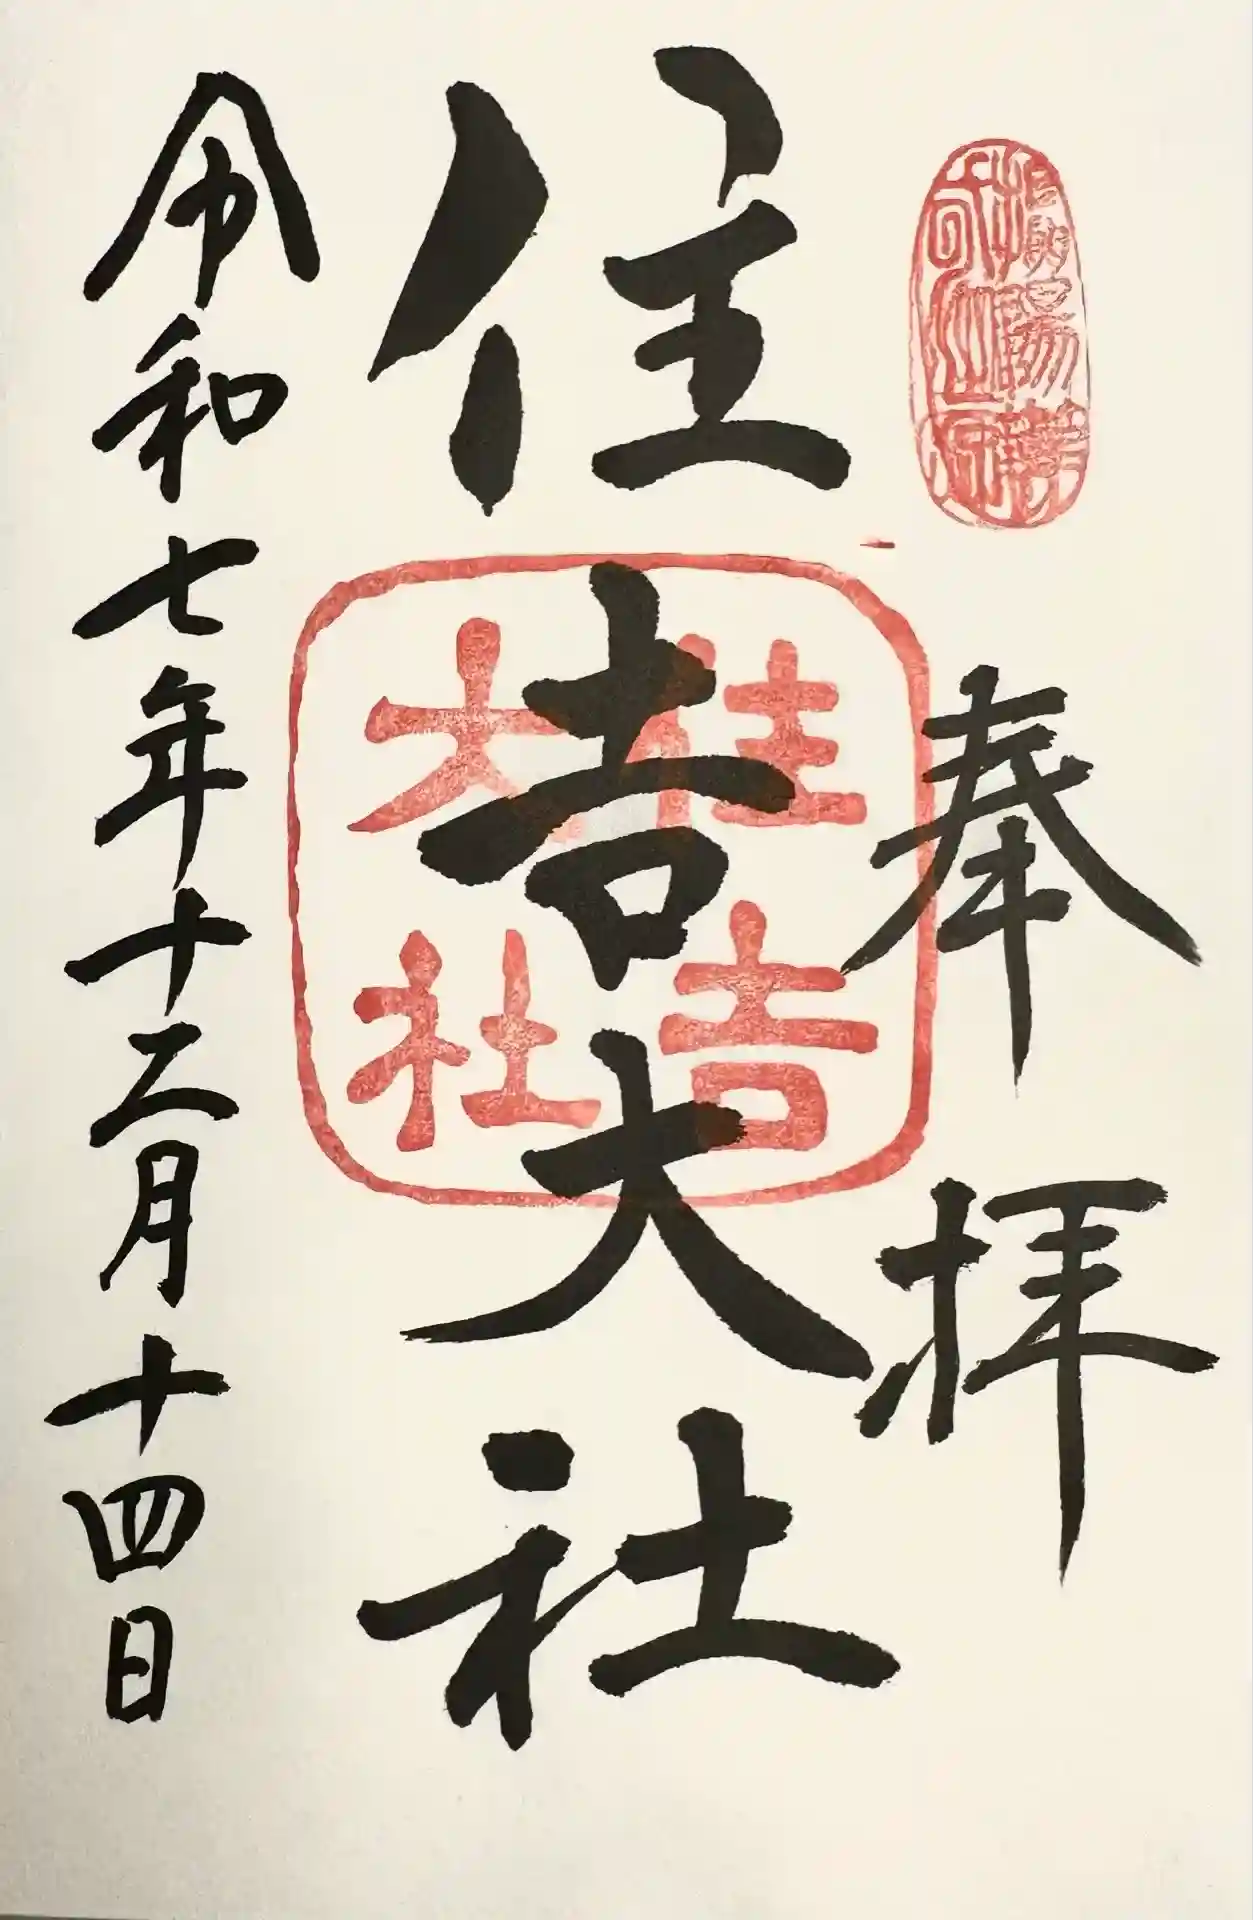 奉拝
住吉大社
住吉
大社
令和七年十二月十四日